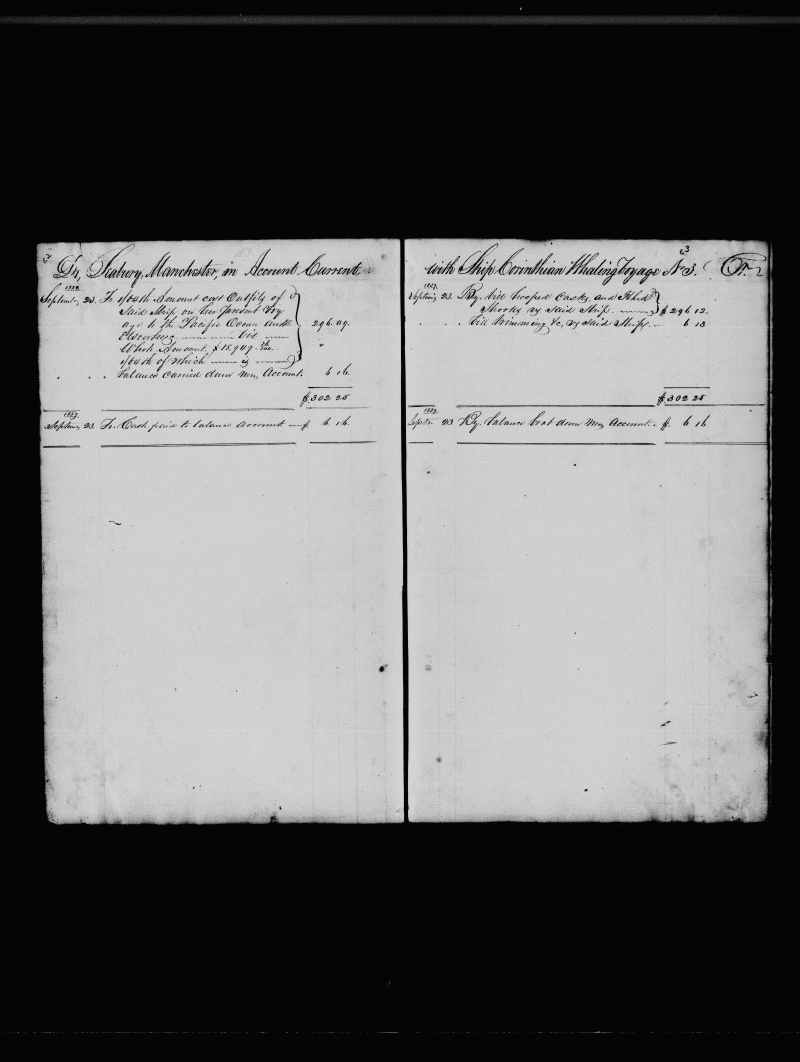 3
Dr, Seabury Manchester, in Account Current
Septem., 23. To 1/64th Amount cost Outfits of
Said Ship on her Present Voy
age to the Pacific Ocean and
Elsewhere 296.09.
Whole Amount, $18,949.
1/64th of which is
balance carried down New Account. 6 16.
$302 25
23. To Cash paid to balance Account 6 16.
3
with Ship Corinthian Whaling Voyage No 3. Cr.
23. By bill hooped Casks, and
Shooks by Said Ship. $ 296 12.
bill trimming &c, by Said Ship, 6 13
$302 25
23 By balance brot down New Account. $ 6 16